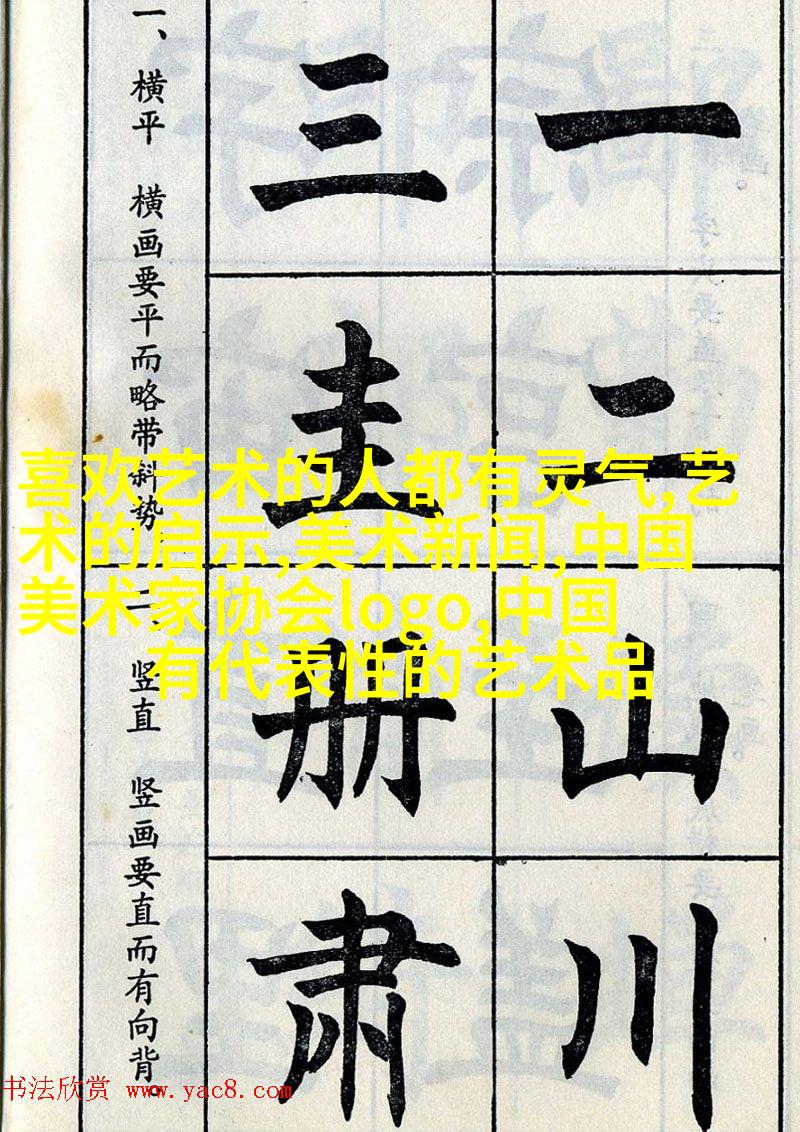 一、横平 横画要平而略带斜势。
二、竖直 竖画要直而有向背。
一
二
山
川
三
圭
册
肃
喜欢艺术的人都有灵气,艺
术的启示,美术新闻,中国
美术家协会logo,中国
有代表性的艺术品
书法欣赏 www.yac8.com